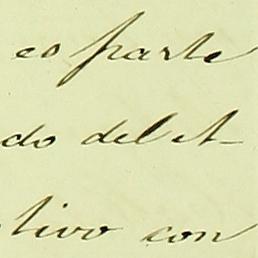 es parte
do del et-
tivo con